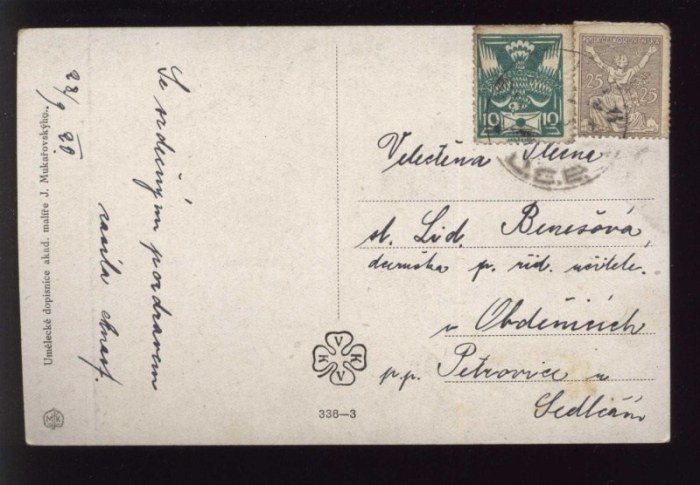 Umělecké dopisnice akad. malíře J. Mukařovského.
23/9 20
Se srdečným pozdravem
10 10
25 25
Velectěná Slečna
sl. Lid. Benešová
dceruška p. říd. učitele
v Obděnicích
p.p. Petrovice u
Sedlčan
V K V K
338—3